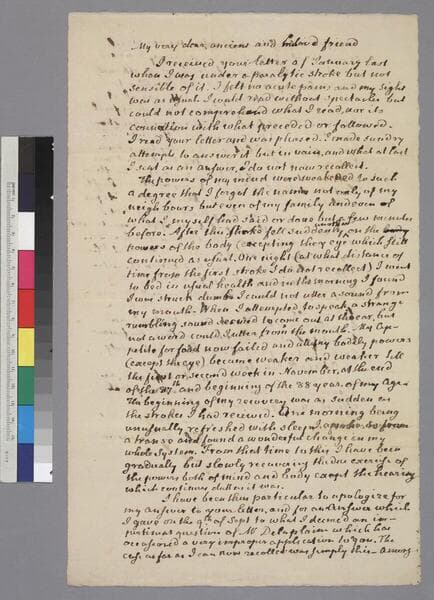 My very dear, ancient and beloved friend
I received your letter of January last
when I was under a paralytic stroke but not
sensible of it. I felt no acute pain, and my sight
was as usual. I could read without spectacles but
could not comprehend what I read, nor its
connection with what preceded or followed.
I read your letter and was pleased. I made sundry
attempts to answer it but in vain, and what at last
I sent as an answer, I do not now recollect.
The powers of my mind were weakened to such
a degree that I forgot the names not only of my
neighbours but even of my family and even of
what I myself had said or done but a few minutes
before. After this shocks fell suddenly on the
powers of the body (excepting the eye which still
continued as usual. One night (at what distance of
time from the first stroke I do not recollect) I went
to bed in usual health and in the morning I found
I was struck dumb. I could not utter a sound from
my mouth. When I attempted to speak a strange
rumbling sound seemed to come out at the ear, but
not a word could I utter from the mouth. My Ap-
petite for food now failed and all my bodily powers
(except the eye) became weaker and weaker till
the first or second week in November, at the end
of the 87th and beginning of the 88 year of my Age.
The beginning of my recovery was as sudden as
the strokes I had received. One morning being
unusually refreshed with sleep I awoke as from
a trance and found a wonderful change in my
whole system. From that time to this I have been
gradually but slowly recovering the due exercise of
the powers both of mind and body except the hearing
which continues dull as it was.
I have been thus particular to apologize for
my answer to your letter, and for an Answer which
I gave on the 9th of Sept to what I deemed an im-
pertinent question of Mr Delaplain which has
occasioned a very improper application to you. The
case as far as I can now recollect was simply this. Among